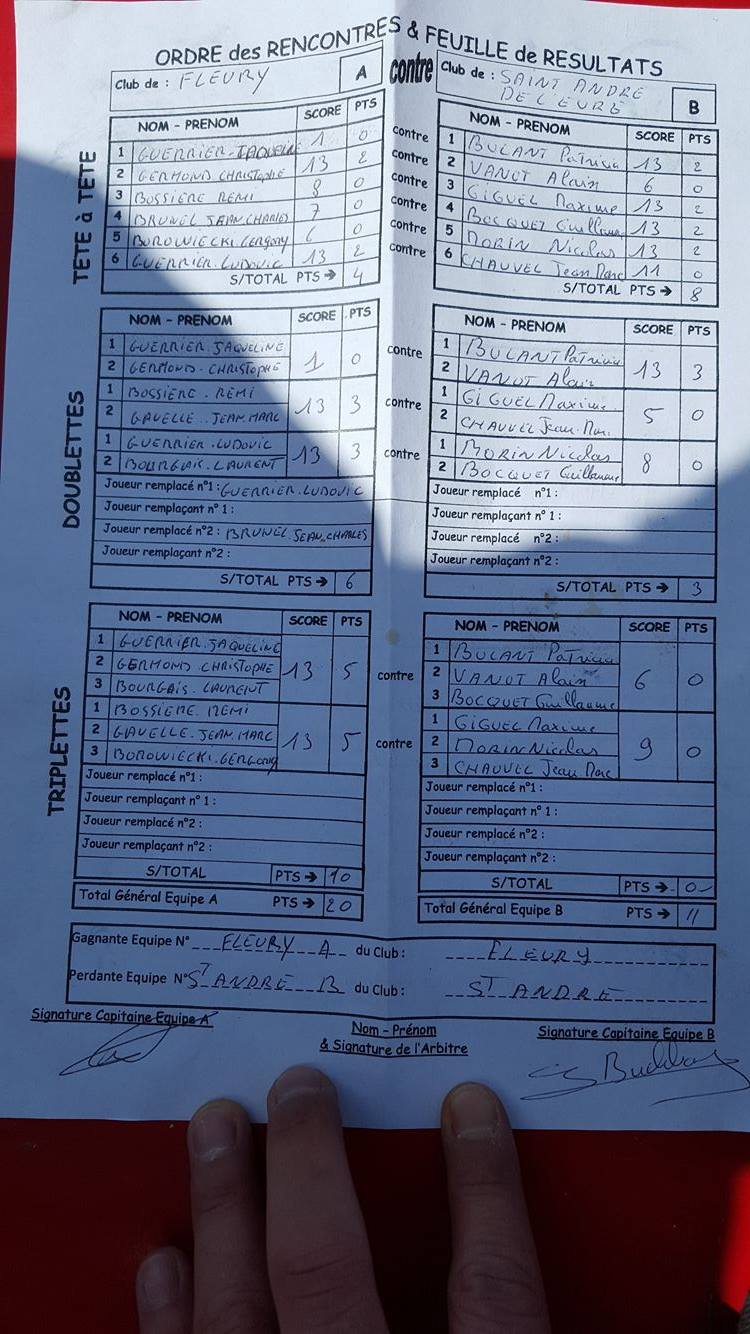 ORDRE des RENCONTRES & FEUILLE de RESULTATS
Club de : FLEURY A contre Club de : SAINT ANDRE DE L'EURE B
TETE à TETE
NOM - PRENOM SCORE PTS NOM - PRENOM SCORE PTS
1 GUERRIER.JAQUELINE 1 0 contre 1 BULANT Patricia 13 2
2 GERMOND CHRISTOPHE 13 2 contre 2 VANOT Alain 6 0
3 BOSSIERE REMI 8 0 contre 3 GIGUEL Maxime 13 2
4 BRUNEL JEAN CHARLES 7 0 contre 4 BOCQUET Guillaume 13 2
5 BOROWIECKI.Gergony 6 0 contre 5 MORIN Nicolas 13 2
6 GUERRIER.LUDOVIC 13 2 contre 6 CHAUVEL Jean Marc 11 0
S/TOTAL PTS → 4 S/TOTAL PTS → 8
DOUBLETTES
NOM - PRENOM SCORE PTS NOM - PRENOM SCORE PTS
1 GUERRIER.JAQUELINE 1 0 contre 1 BULANT Patricia 13 3
2 GERMOND.CHRISTOPHE 2 VANOT Alain
1 BOSSIERE.REMI 13 3 contre 1 GIGUEL Maxime 5 0
2 GAVELLE.JEAN.MARC 2 CHAUVEL Jean.Marc
1 GUERRIER.LUDOVIC 13 3 contre 1 MORIN Nicolas 8 0
2 BOURGAIS.LAURENT 2 BOCQUET Guillaume
Joueur remplacé n°1 : GUERRIER.LUDOVIC Joueur remplacé n°1 :
Joueur remplaçant n° 1 : Joueur remplaçant n° 1 :
Joueur remplacé n°2 : BRUNEL.JEAN.CHARLES Joueur remplacé n°2 :
Joueur remplaçant n°2 : Joueur remplaçant n°2 :
S/TOTAL PTS → 6 S/TOTAL PTS → 3
TRIPLETTES
NOM - PRENOM SCORE PTS NOM - PRENOM SCORE PTS
1 GUERRIER.JAQUELINE 1 BULANT Patricia
2 GERMOND CHRISTOPHE 13 5 contre 2 VANOT Alain 6 0
3 BOURGAIS.LAURENT 3 BOCQUET Guillaume
1 BOSSIERE REMI 1 GIGUEL Maxime
2 GAVELLE.JEAN.MARC 13 5 contre 2 MORIN Nicolas 9 0
3 BOROWIECKI.GERGONY 3 CHAUVEL Jean Marc
Joueur remplacé n°1 : Joueur remplacé n°1 :
Joueur remplaçant n° 1 : Joueur remplaçant n° 1 :
Joueur remplacé n°2 : Joueur remplacé n°2 :
Joueur remplaçant n°2 : Joueur remplaçant n°2 :
S/TOTAL PTS → 10 S/TOTAL PTS → 0
Total Général Equipe A PTS → 20 Total Général Equipe B PTS → 11
Gagnante Equipe N° FLEURY A du Club : FLEURY
Perdante Equipe N° ST ANDRE B du Club : ST ANDRE
Signature Capitaine Equipe A Nom - Prénom Signature Capitaine Equipe B
& Signature de l'Arbitre